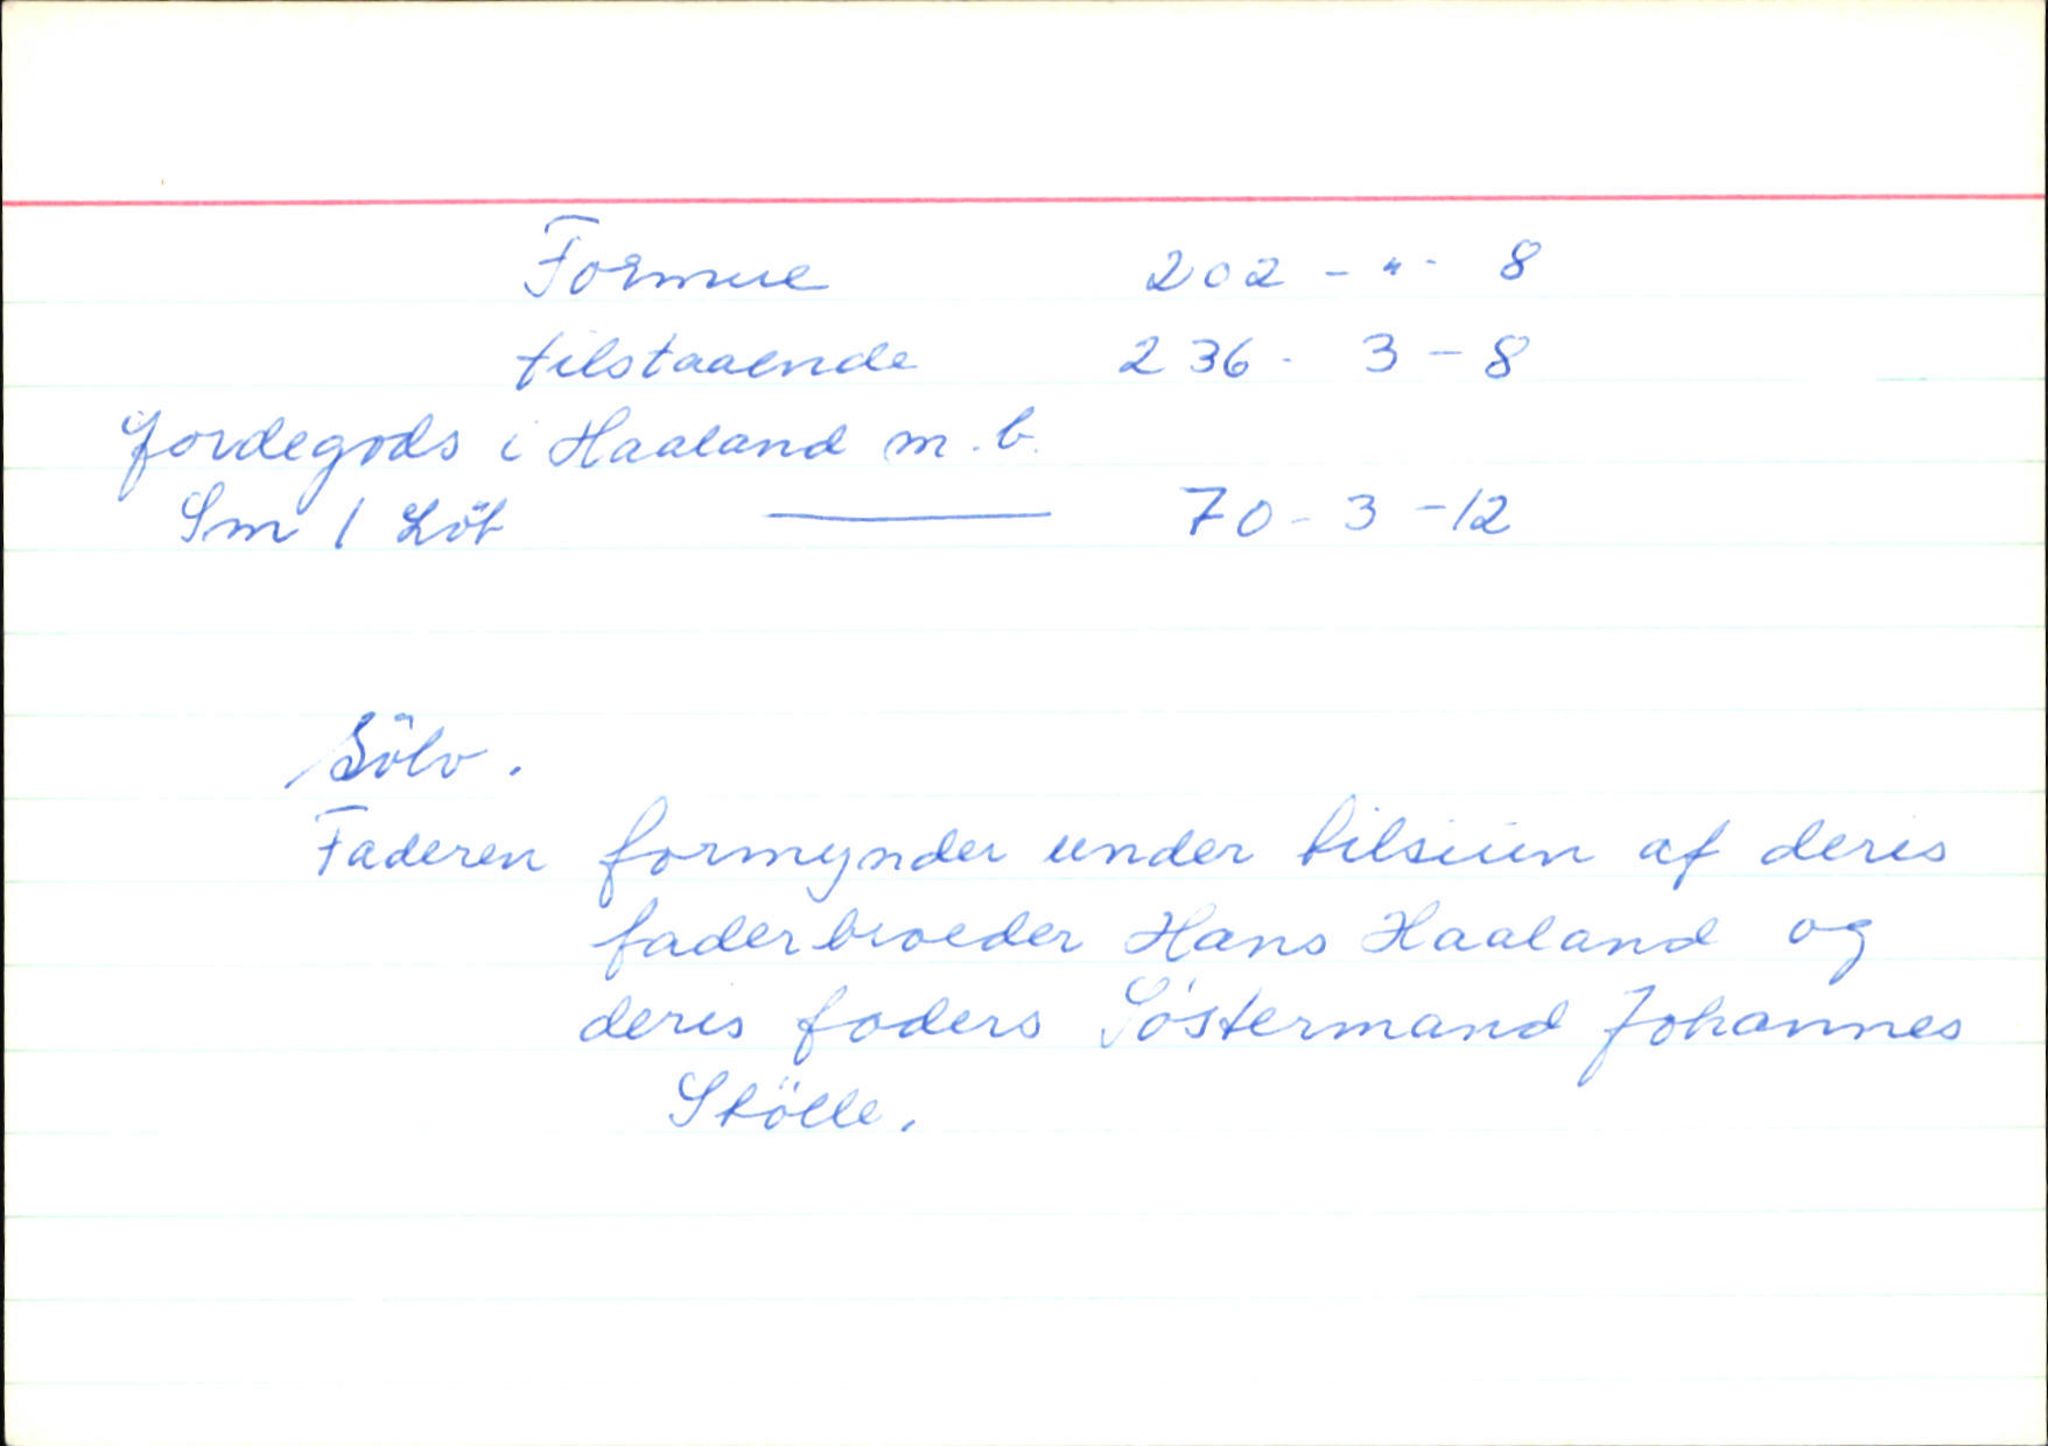 Formue 202 - " - 8
tilstaaende 236 - 3 - 8
Jordegods i Haaland m.b.
Sm 1 Löb — 70 - 3 - 12
Sölv.
Faderen formynder under tilsiun af deris
faderbroeder Hans Haaland og
deris faders Söstermand Johannes